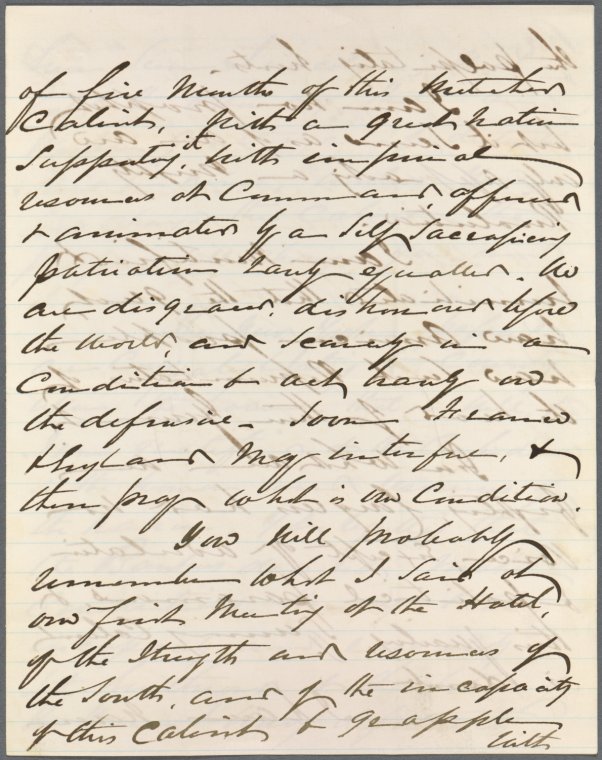 of five Months of this wretched
Cabinet, with a great Nation
Supporting it, with imperial
resources at Command, offered
& animated by a Self Sacrificing
patriotism rarely equalled. We
are disgraced, dishonoured before
the World, and Scarcely in a
Condition to act barely on
the defensive. Soon France
& England may interfere, &
then pray what is our Condition.
You will probably
remember what I Said at
our first Meeting at the Hotel,
of the Strength and resources of
the South, and of the incapacity
of this Cabinet to grapple
with